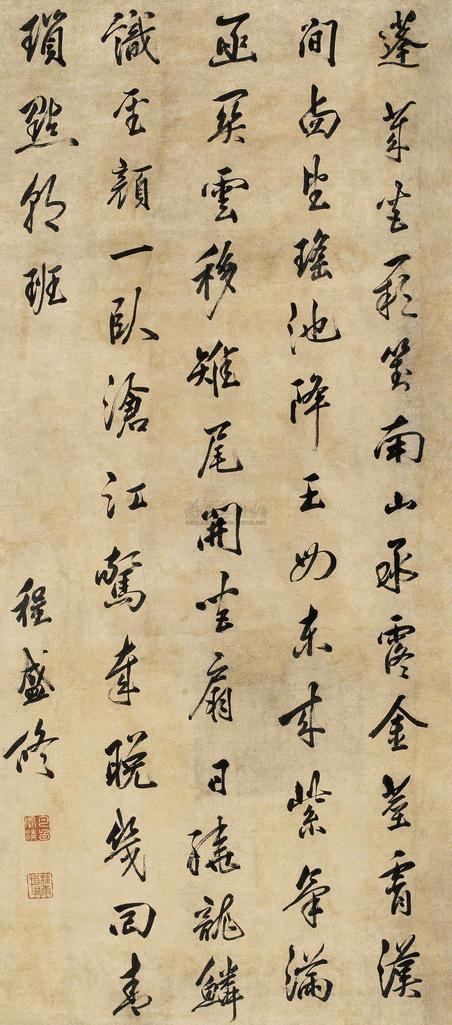 蓬萊宮闕對南山承露金莖霄漢
間西望瑤池降王母東來紫氣滿
函關雲移雉尾開宮扇日繞龍鱗
識聖顏一臥滄江驚歲晚幾回青
瑣點朝班
程盛修